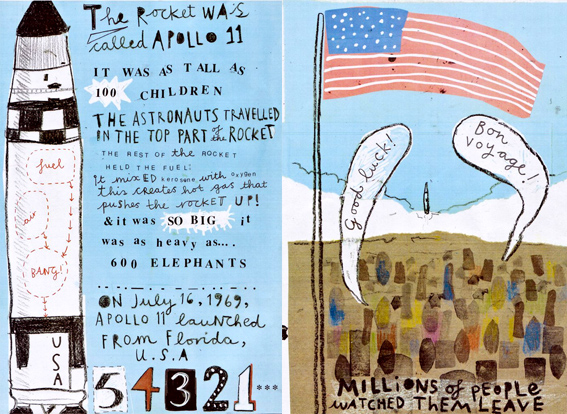 The Rocket WAS
called APOLLO 11
IT WAS AS TALL AS
100 CHILDREN
THE ASTRONAUTS TRAVELLED
IN THE TOP PART of the ROCKET
THE REST OF the ROCKET
HELD THE FUEL:
it mixED kerosene with oxygen
this creates hot gas that
pushes the rocket UP!
& it was SO BIG it
was as heavy as....
600 ELEPHANTS
ON July 16, 1969,
APOLLO 11 launched
FROM Florida,
U.S.A
5 4 3 2 1 ***
fuel
air
BANG!
USA
Good luck!
Bon
voyage!
MILLIONS of PEOPLE
WATCHED THEM LEAVE